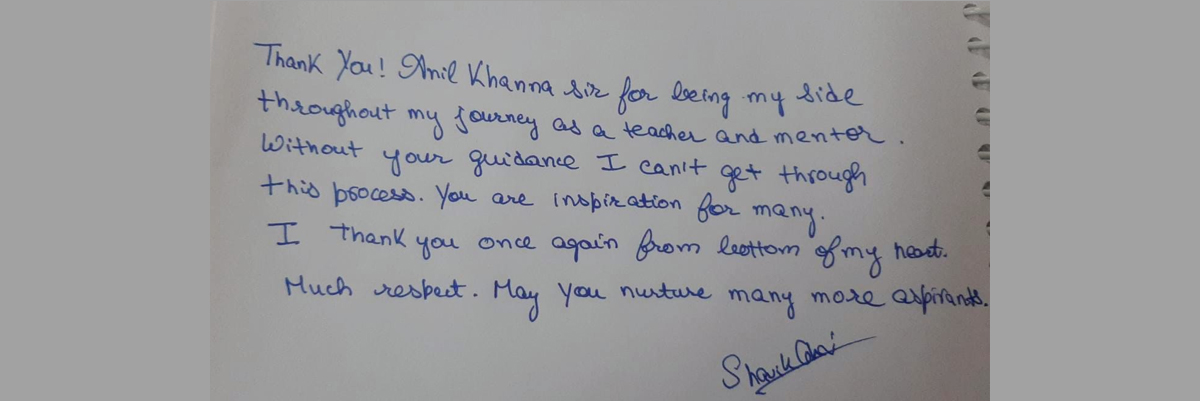 Thank You! Anil Khanna sir for being my side
throughout my journey as a teacher and mentor.
Without your guidance I can't get through
this process. You are inspiration for many.
I thank you once again from bottom of my heart.
Much respect. May You nurture many more aspirants.